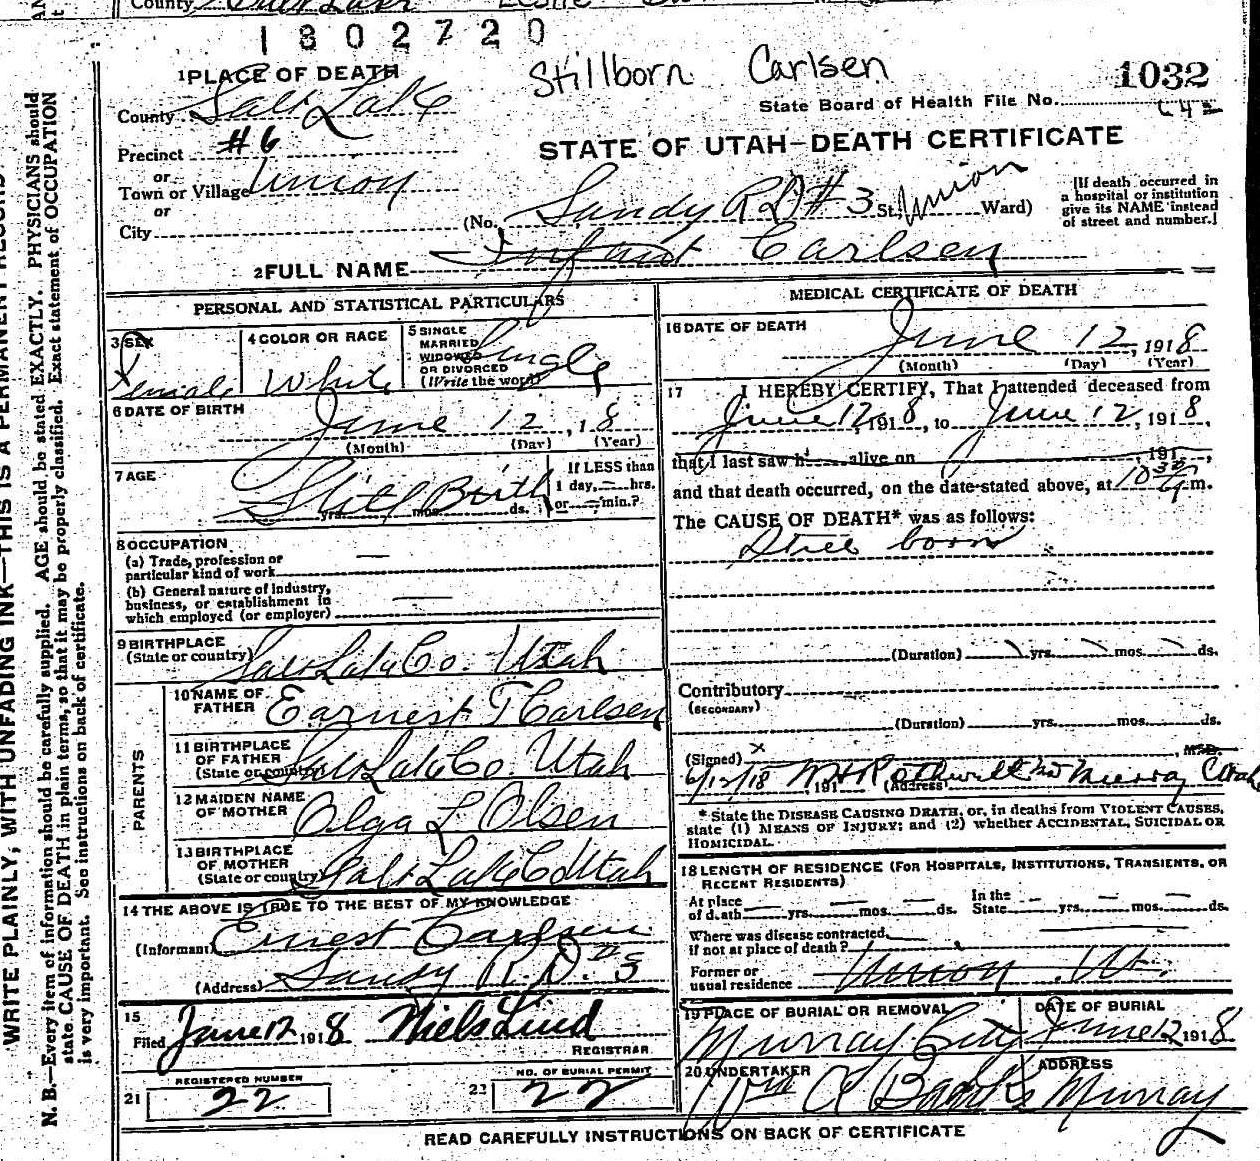 County
1802720
Stillborn Carlsen
1032
1 PLACE OF DEATH
State Board of Health File No.
County Salt Lake
STATE OF UTAH—DEATH CERTIFICATE
Precinct #6
or
Town or Village Union
or
City
(No. Sandy R D # 3 St. Union Ward)
[If death occurred in
a hospital or institution
give its NAME instead
of street and number.]
2 FULL NAME Infant Carlsen
PERSONAL AND STATISTICAL PARTICULARS
3 SEX
Female
4 COLOR OR RACE
White
5 SINGLE
MARRIED
WIDOWED
OR DIVORCED
(Write the word)
Single
6 DATE OF BIRTH
June 12, 18
(Month) (Day) (Year)
7 AGE
Still Birth
yrs. mos. ds.
If LESS than
1 day, — hrs.
or — min.?
8 OCCUPATION
(a) Trade, profession or
particular kind of work —
(b) General nature of industry,
business, or establishment in
which employed (or employer) —
9 BIRTHPLACE
(State or country) Salt Lake Co. Utah
PARENTS
10 NAME OF
FATHER Earnest T Carlsen
11 BIRTHPLACE
OF FATHER
(State or country) Salt Lake Co. Utah
12 MAIDEN NAME
OF MOTHER Olga L Olsen
13 BIRTHPLACE
OF MOTHER
(State or country) Salt Lake Co Utah
14 THE ABOVE IS TRUE TO THE BEST OF MY KNOWLEDGE
(Informant) Ernest Carlsen
(Address) Sandy R. D. # 3
15
Filed June 12 1918 Niels Lind
REGISTRAR
REGISTERED NUMBER
21 22
NO. OF BURIAL PERMIT
22 22
MEDICAL CERTIFICATE OF DEATH
16 DATE OF DEATH
June 12, 1918
(Month) (Day) (Year)
17 I HEREBY CERTIFY, That I attended deceased from
June 12, 1918, to June 12, 1918,
that I last saw h alive on , 191 ,
and that death occurred, on the date stated above, at 10 30 m.
The CAUSE OF DEATH* was as follows:
Still born
(Duration) yrs. mos. ds.
Contributory
(SECONDARY)
(Duration) yrs. mos. ds.
(Signed) x , M.D.
6/12/18 191 (Address) Murray Utah
* State the DISEASE CAUSING DEATH, or, in deaths from VIOLENT CAUSES,
state (1) MEANS OF INJURY; and (2) whether ACCIDENTAL, SUICIDAL OR
HOMICIDAL.
18 LENGTH OF RESIDENCE (FOR HOSPITALS, INSTITUTIONS, TRANSIENTS, OR
RECENT RESIDENTS)
At place
of death — yrs. — mos. — ds.
In the
State — yrs. — mos. — ds.
Where was disease contracted,
if not at place of death?
Former or
usual residence Union, Ut.
19 PLACE OF BURIAL OR REMOVAL
Murray City
DATE OF BURIAL
June 12 1918
20 UNDERTAKER
Wm A
ADDRESS
Murray
READ CAREFULLY INSTRUCTIONS ON BACK OF CERTIFICATE
WRITE PLAINLY, WITH UNFADING INK—THIS IS A PERMANENT RECORD
N. B.—Every item of information should be carefully supplied. AGE should be stated EXACTLY. PHYSICIANS should
state CAUSE OF DEATH in plain terms, so that it may be properly classified. Exact statement of OCCUPATION
is very important. See instructions on back of certificate.